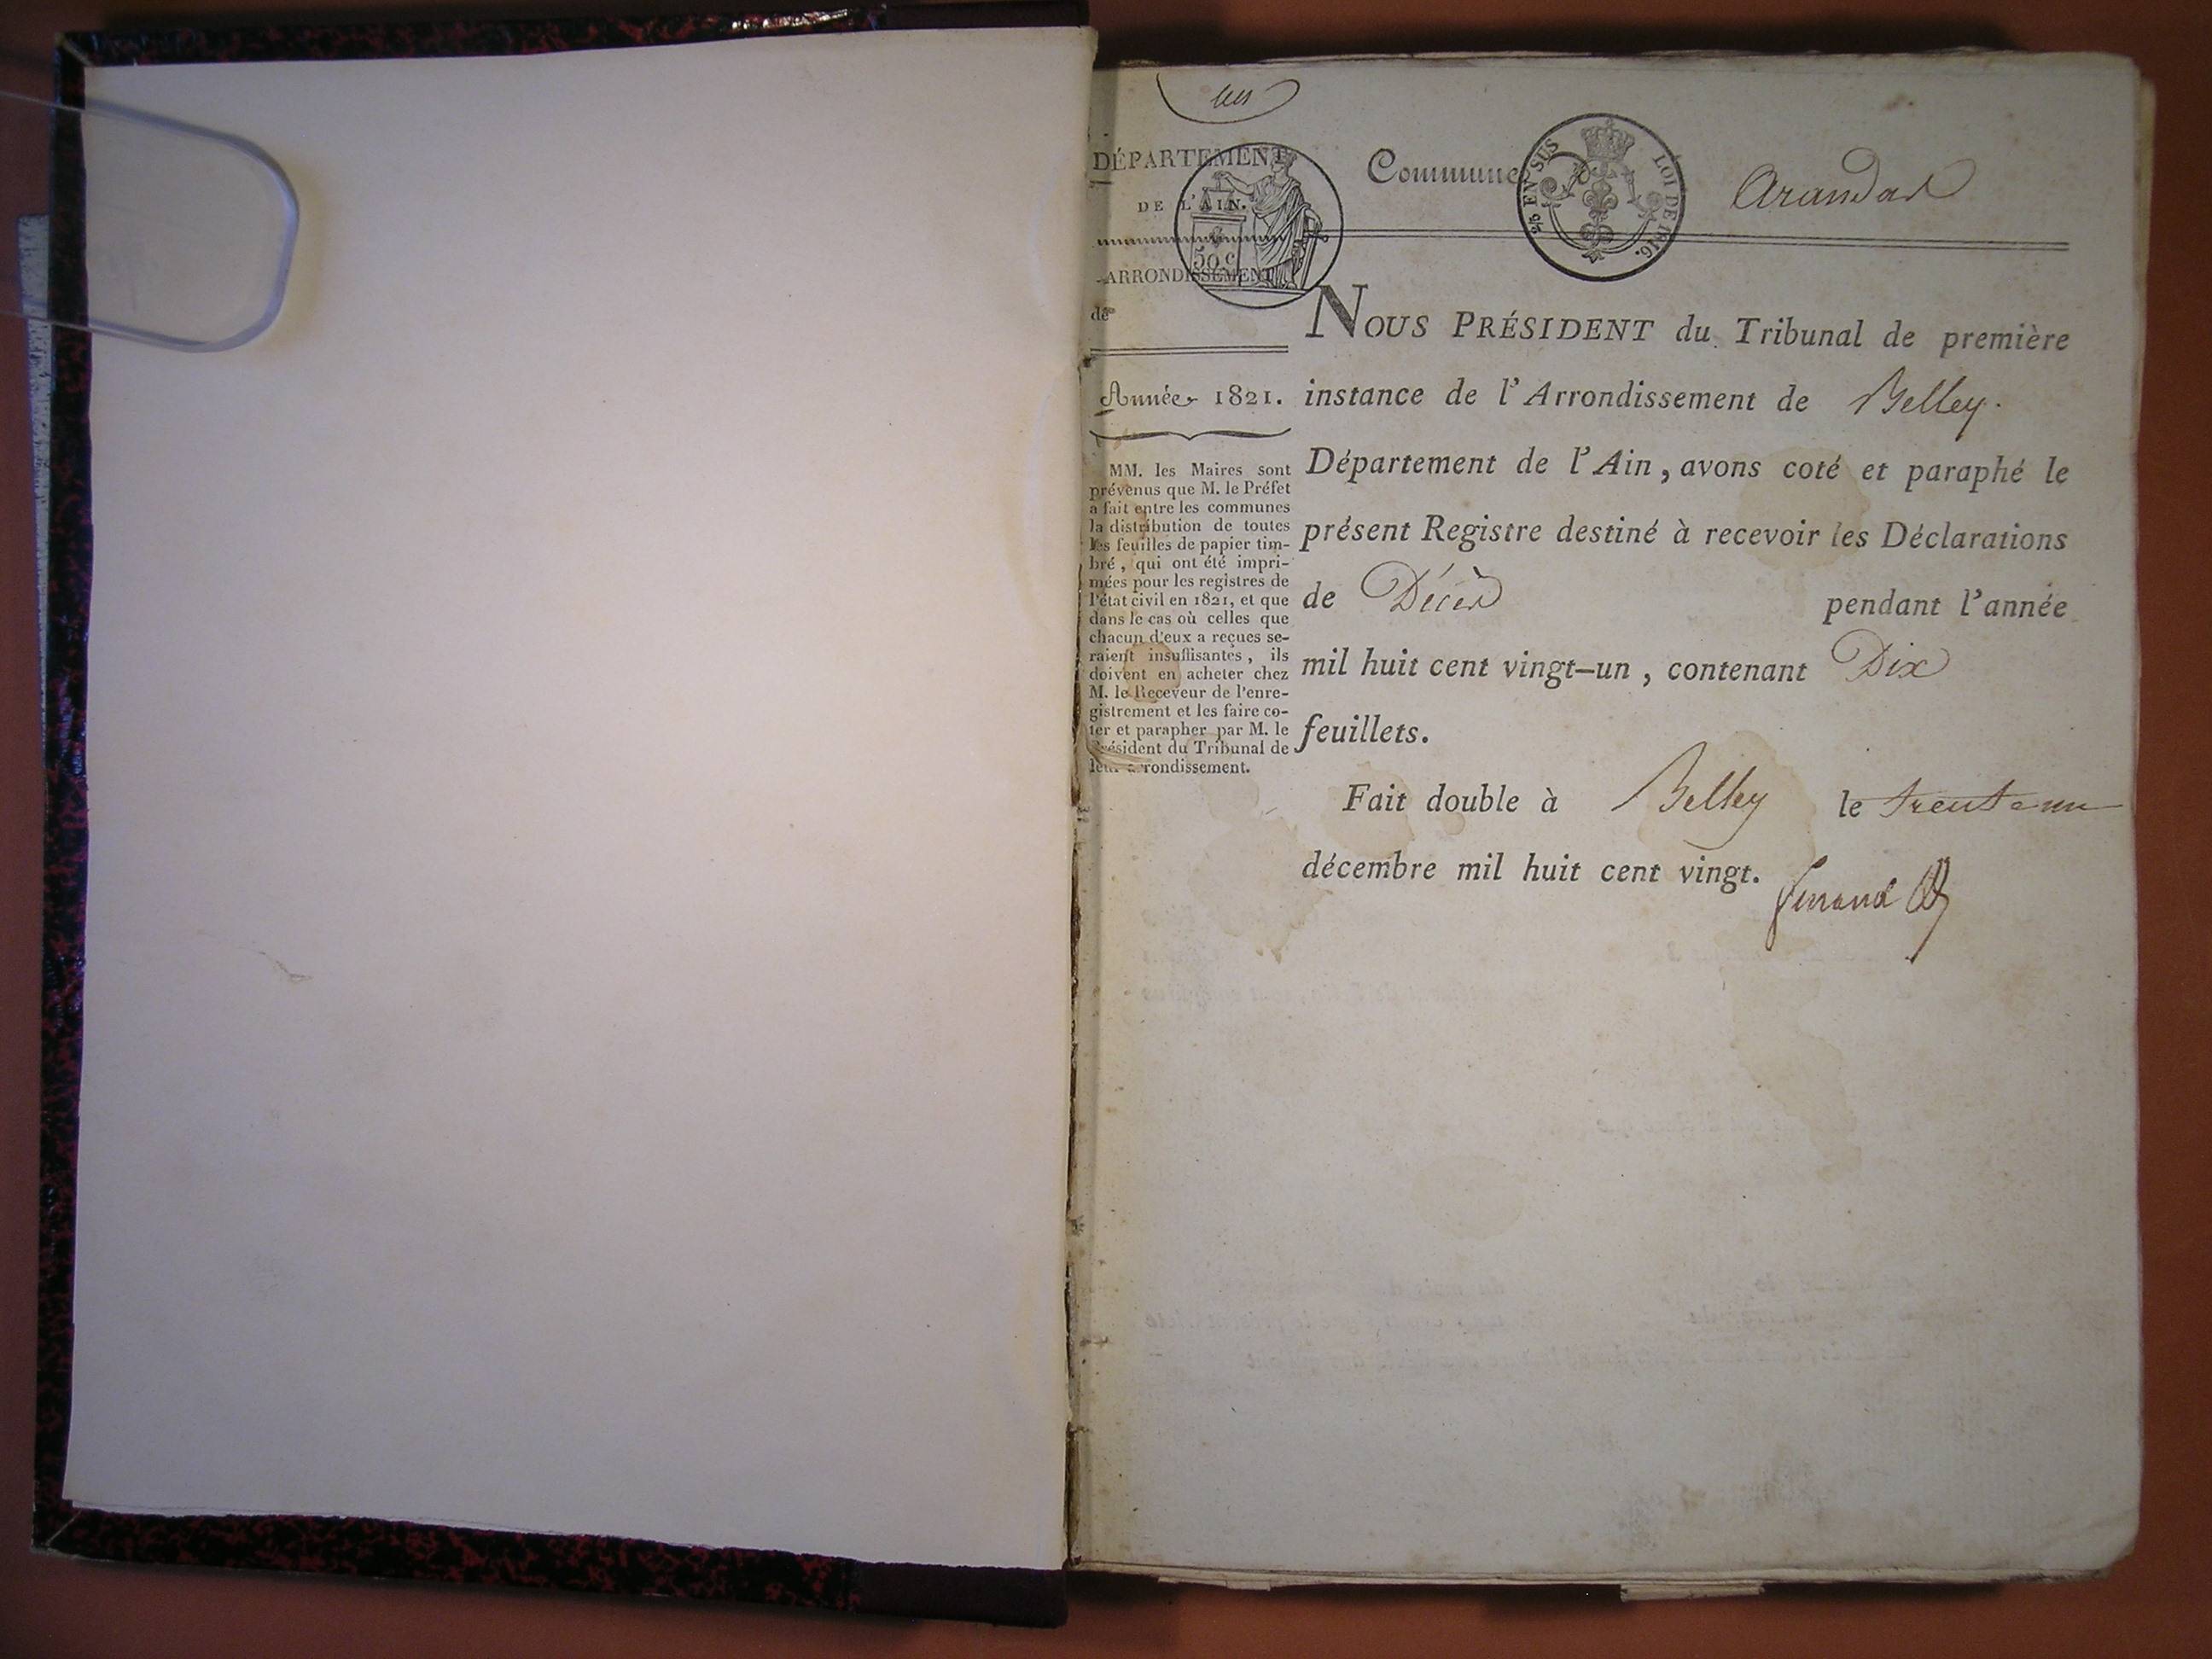 DÉPARTEMENT
DE L'AIN.
50 c
ARRONDISSEMENT
de
Année 1821.
MM. les Maires sont
prévenus que M. le Préfet
a fait entre les communes
la distribution de toutes
les feuilles de papier tim-
bré, qui ont été impri-
mées pour les registres de
l'état civil en 1821, et que
dans le cas où celles que
chacun d'eux a reçues se-
raient insuffisantes, ils
doivent en acheter chez
M. le Receveur de l'enre-
gistrement et les faire co-
ter et parapher par M. le
Président du Tribunal de
leur arrondissement.
Commune Arandas
EN SUS LOI DE 1816.
NOUS PRÉSIDENT du Tribunal de première
instance de l'Arrondissement de Belley.
Département de l'Ain, avons coté et paraphé le
présent Registre destiné à recevoir les Déclarations
de Décès pendant l'année
mil huit cent vingt-un, contenant Dix
feuillets.
Fait double à Belley le trente un
décembre mil huit cent vingt.